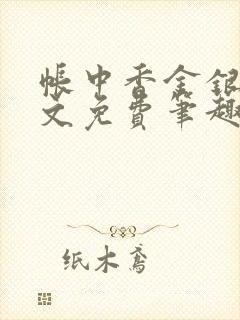 帐中香金银
文免费笔趣
纸木鸢